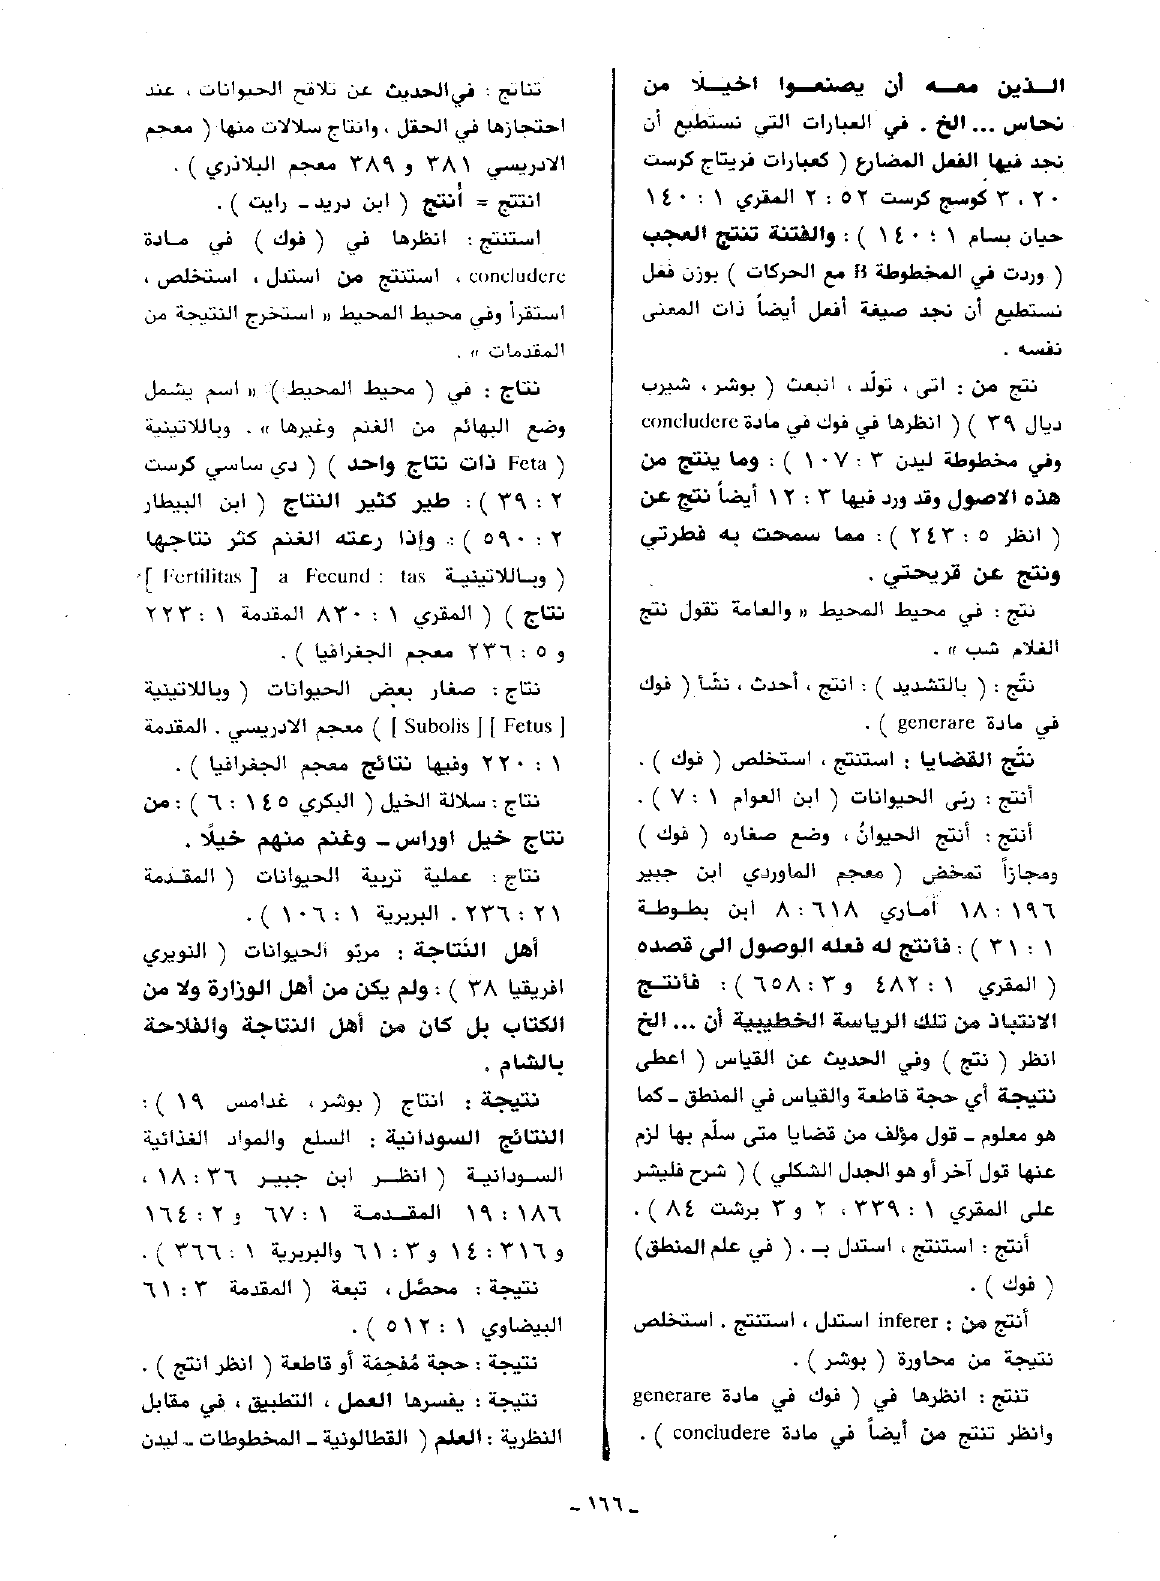 الـذين معـه أن يصنعـوا اخيـلًا من
نحاس ... الخ . في العبارات التي نستطيع أن
نجد فيها الفعل المضارع ( كعبارات فريتاج كرست
٢٠ ، ٣ كوسج كرست ٥٢ : ٢ المقري ١ : ١٤٠
حيان بسام ١ : ١٤٠ ) : والفتنة تنتج العجب
( وردت في المخطوطة B مع الحركات ) بوزن فعل
نستطيع أن نجد صيغة أفعل أيضاً ذات المعنى
نفسه .
نتج من : اتى ، تولّد ، انبعث ( بوشر ، شيرب
ديال ٣٩ ) ( انظرها في فوك في مادة concludere
وفي مخطوطة ليدن ٣ : ١٠٧ ) : وما ينتج من
هذه الاصول وقد ورد فيها ٣ : ١٢ أيضاً نتج عن
( انظر ٥ : ٢٤٣ ) : مما سمحت به فطرتي
ونتج عن قريحتي .
نتج : في محيط المحيط « والعامة تقول نتج
الغلام شب » .
نتّج : ( بالتشديد ) : انتج ، أحدث ، نشّأ ( فوك
في مادة generare ) .
نتّج القضايا : استنتج ، استخلص ( فوك ) .
أنتج : ربّى الحيوانات ( ابن العوام ١ : ٧ ) .
أنتج : أنتج الحيوانُ ، وضع صغاره ( فوك )
ومجازاً تمخض ( معجم الماوردي ابن جبير
١٩٦ : ١٨ أماري ٦١٨ : ٨ ابن بطـوطـة
١ : ٣١ ) : فأنتج له فعله الوصول الى قصده
( المقري ١ : ٤٨٢ و ٣ : ٦٥٨ ) : فأنتـج
الانتباذ من تلك الرياسة الخطيبية أن ... الخ
انظر ( نتج ) وفي الحديث عن القياس ( اعطى
نتيجة أي حجة قاطعة والقياس في المنطق ـ كما
هو معلوم ـ قول مؤلف من قضايا متى سلّم بها لزم
عنها قول آخر أو هو الجدل الشكلي ) ( شرح فليشر
على المقري ١ : ٣٣٩ ، ٢ و ٣ برشت ٨٤ ) .
أنتج : استنتج ، استدل بـ . ( في علم المنطق )
( فوك ) .
أنتج من : inferer استدل ، استنتج . استخلص
نتيجة من محاورة ( بوشر ) .
تنتج : انظرها في ( فوك في مادة generare
وانظر تنتج من أيضاً في مادة concludere ) .
تناتج : في الحديث عن تلاقح الحيوانات ، عند
احتجازها في الحقل ، وانتاج سلالات منها ( معجم
الادريسي ٣٨١ و ٣٨٩ معجم البلاذري ) .
انتتج = أُنتج ( ابن دريد ـ رايت ) .
استنتج : انظرها في ( فوك ) في مـادة
concludere ، استنتج من استدل ، استخلص ،
استقرأ وفي محيط المحيط « استخرج النتيجة من
المقدمات » .
نتاج : في ( محيط المحيط ) « اسم يشمل
وضع البهائم من الغنم وغيرها » . وباللاتينية
( Feta ذات نتاج واحد ) ( دي ساسي كرست
٢ : ٣٩ ) : طير كثير النتاج ( ابن البيطار
٢ : ٥٩٠ ) : وإذا رعته الغنم كثر نتاجها
( وبـاللاتينيـة a Fecund : tas [ Fertilitas ]
نتاج ) ( المقري ١ : ٨٣٠ المقدمة ١ : ٢٢٣
و ٥ : ٢٣٦ معجم الجغرافيا ) .
نتاج : صغار بعض الحيوانات ( وباللاتينية
[ Subolis ] [ Fetus ] ) معجم الادريسي . المقدمة
١ : ٢٢٠ وفيها نتائج معجم الجغرافيا ) .
نتاج : سلالة الخيل ( البكري ١٤٥ : ٦ ) : من
نتاج خيل اوراس ـ وغنم منهم خيلًا .
نتاج : عملية تربية الحيوانات ( المقـدمة
٢١ : ٢٣٦ . البربرية ١ : ١٠٦ ) .
أهل النّتاجة : مربّو الحيوانات ( النويري
افريقيا ٣٨ ) : ولم يكن من أهل الوزارة ولا من
الكتاب بل كان من أهل النتاجة والفلاحة
بالشام .
نتيجة : انتاج ( بوشر ، غدامس ١٩ ) :
النتائج السودانية : السلع والمواد الغذائية
السـودانيـة ( انظـر ابن جبيـر ٣٦ : ١٨ ،
١٨٦ : ١٩ المقـدمـة ١ : ٦٧ و ٢ : ١٦٤
و ٣١٦ : ١٤ و ٣ : ٦١ والبربرية ١ : ٣٦٦ ) .
نتيجة : محصّل ، تبعة ( المقدمة ٣ : ٦١
البيضاوي ١ : ٥١٢ ) .
نتيجة : حجة مُفحِمَة أو قاطعة ( انظر انتج ) .
نتيجة : يفسرها العمل ، التطبيق ، في مقابل
النظرية : العلم ( القطالونية ـ المخطوطات ـ ليدن
ـ ١٦٦ ـ